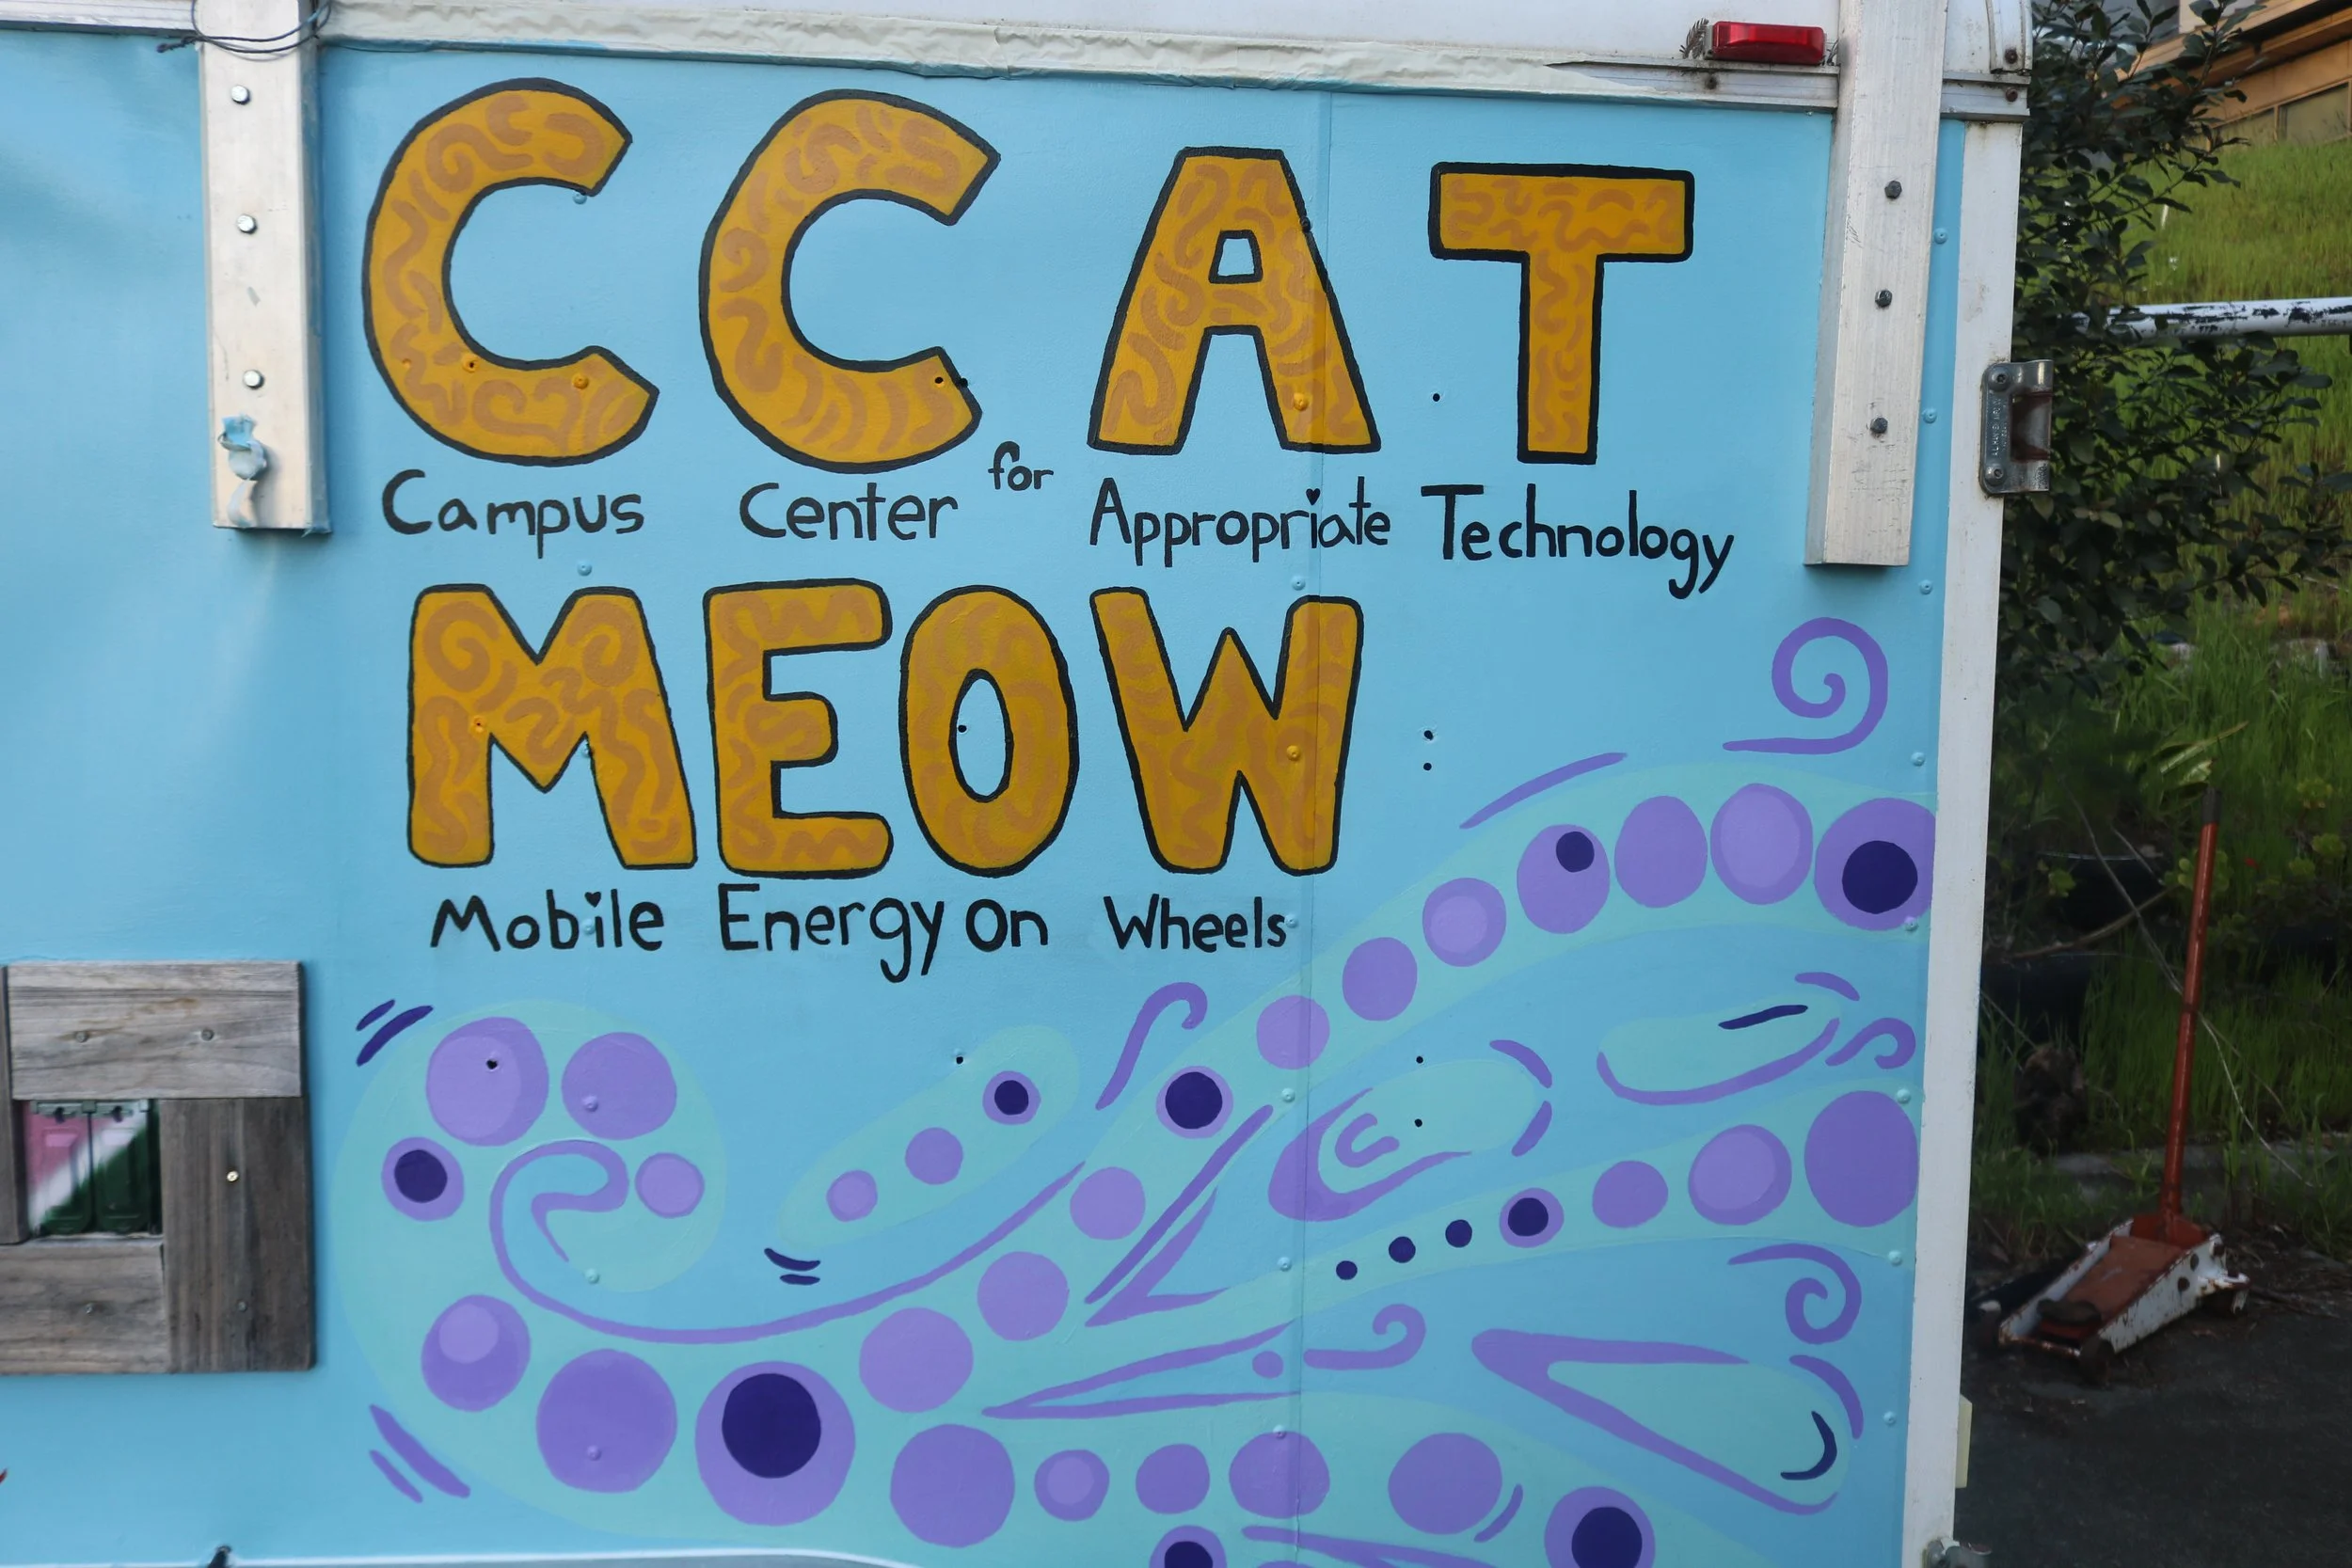 CCAT
Campus Center for Appropriate Technology
MEOW
Mobile Energy On Wheels